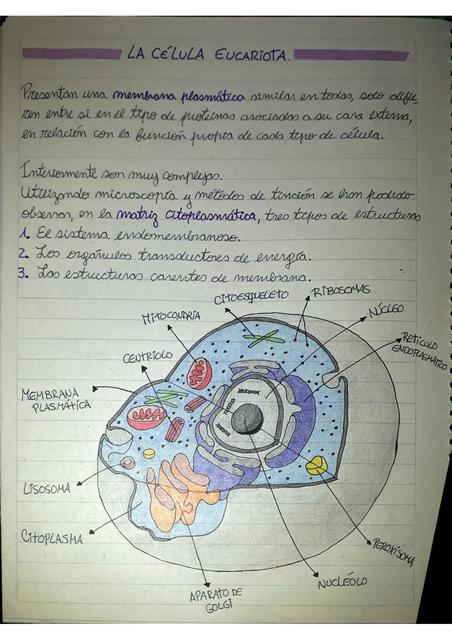 LA CÉLULA EUCARIOTA.
Presentan una membrana plasmática similar en todas, solo difie-
ren entre si en el tipo de proteínas asociadas a su cara externa,
en relación con la función propia de cada tipo de célula.
Interiormente son muy complejas.
Utilizando microscopía y métodos de tinción se han podido
observar, en la matriz citoplasmática, tres tipos de estructuras
1. El sistema endomembranoso.
2. Los orgánulos transductores de energía.
3. Las estructuras carentes de membrana.
CITOESQUELETO
RIBOSOMAS
MITOCONDRIA
NÚCLEO
CENTRIOLO
RETÍCULO
ENDOPLASMÁTICO
MEMBRANA
PLASMÁTICA
LISOSOMA
CITOPLASMA
PEROXISOMA
APARATO DE
GOLGI
NUCLÉOLO